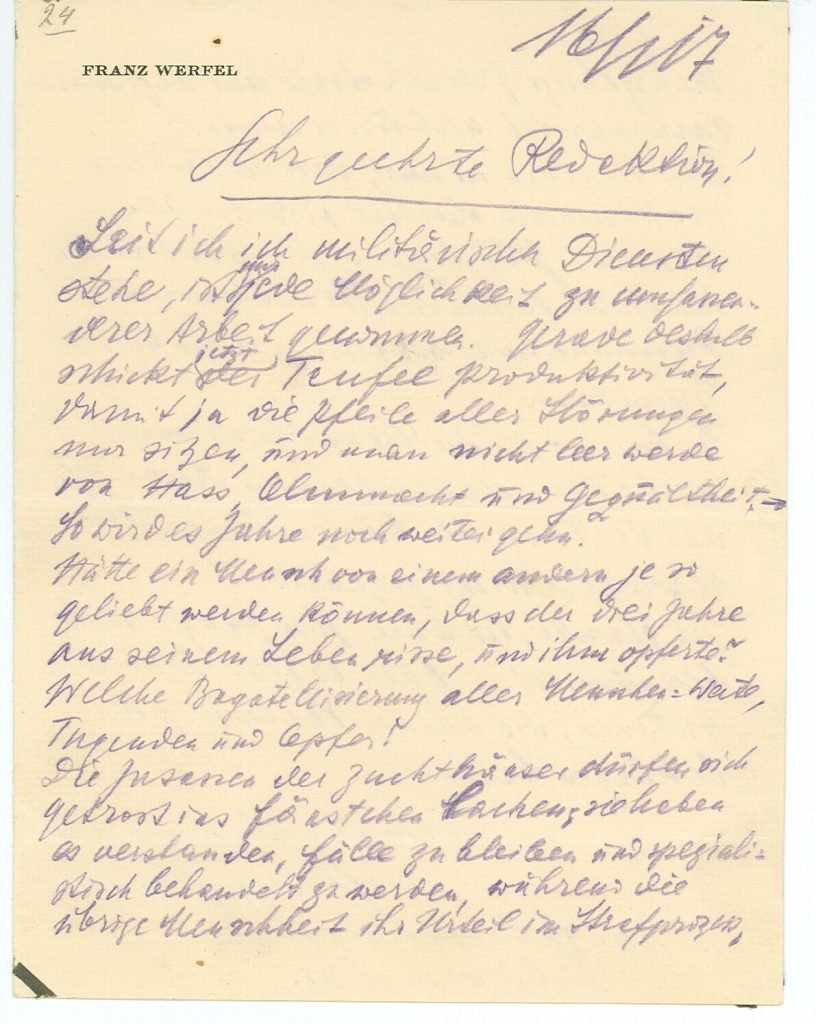 24
16/I 17
FRANZ WERFEL
Sehr geehrte Redaktion!
Seit ich ich militärischen Diensten
stehe, ist mir jede Möglichkeit zu umfassen-
derer Arbeit genommen. Gerade deshalb
schickt jetzt der Teufel Produktivität,
damit ja die Pfeile aller Störungen
nur sitzen, und man nicht leer werde
von Hass, Ohnmacht und Gequältheit. –
So wird es Jahre noch weitergehn.
Hätte ein Mensch von einem andern je so
geliebt werden können, dass der drei Jahre
aus seinem Leben risse, und ihm opferte?
Welche Bagatellisierung aller Menschen=Werte,
Tugenden und Opfer!
Die Insassen der Zuchthäuser dürfen sich
getrost ins Fäustchen lachen, sie haben
es verstanden, Fälle zu bleiben und speziali=
stisch behandelt zu werden, während die
übrige Menschheit ihr Urteil im Strafprozess,